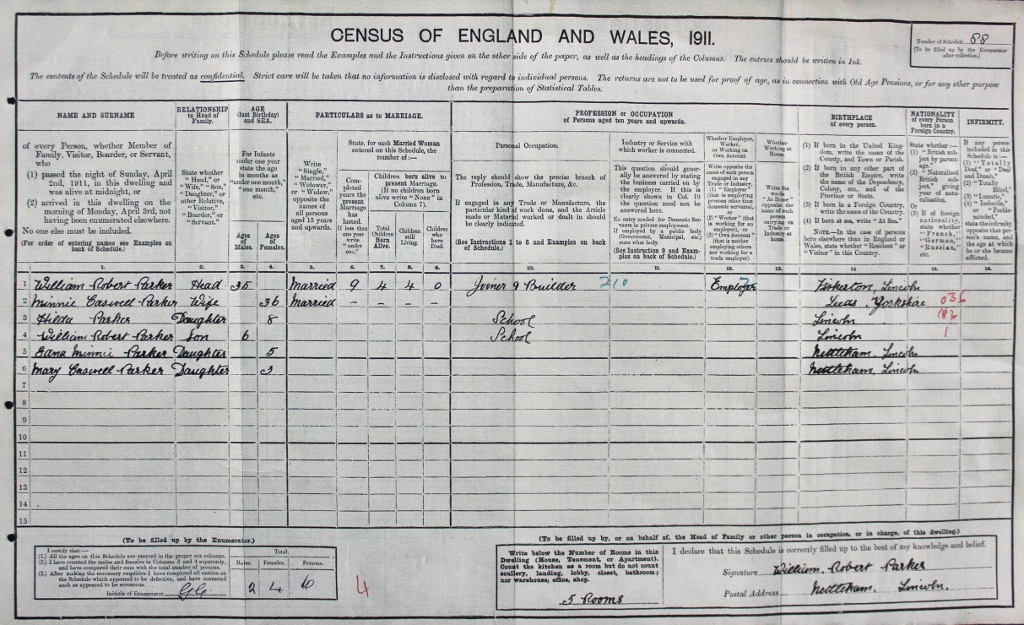 CENSUS OF ENGLAND AND WALES, 1911.
Number of Schedule 88
(To be filled up by the Enumerator after collection.)
Before writing on this Schedule please read the Examples and the Instructions given on the other side of the paper, as well as the headings of the Columns. The entries should be written in Ink.
The contents of the Schedule will be treated as confidential. Strict care will be taken that no information is disclosed with regard to individual persons. The returns are not to be used for proof of age, as in connection with Old Age Pensions, or for any other purpose
than the preparation of Statistical Tables.
NAME AND SURNAME
RELATIONSHIP to Head of Family.
AGE (last Birthday) and SEX.
PARTICULARS as to MARRIAGE.
PROFESSION or OCCUPATION
of Persons aged ten years and upwards.
BIRTHPLACE
of every person.
NATIONALITY of every Person born in a Foreign Country.
INFIRMITY.
of every Person, whether Member of
Family, Visitor, Boarder, or Servant,
who
(1) passed the night of Sunday, April
2nd, 1911, in this dwelling and
was alive at midnight, or
(2) arrived in this dwelling on the
morning of Monday, April 3rd, not
having been enumerated elsewhere.
No one else must be included.
(For order of entering names see Examples on
back of Schedule.)
State whether
"Head," or
"Wife," "Son,"
"Daughter," or
other Relative,
"Visitor,"
"Boarder," or
"Servant."
For Infants
under one year
state the age
in months as
"under one month,"
"one month,"
etc.
Ages of Males.
Ages of Females.
Write
"Single,"
"Married,"
"Widower,"
or "Widow,"
opposite the
names of
all persons
aged 15 years
and upwards.
State, for each Married Woman
entered on this Schedule, the
number of:—
Completed years the present Marriage has lasted.
If less than one year write "under one."
Children born alive to
present Marriage.
(If no children born
alive write "None" in
Column 7).
Total Children Born Alive.
Children still Living.
Children who have Died.
Personal Occupation.
The reply should show the precise branch of
Profession, Trade, Manufacture, &c.
If engaged in any Trade or Manufacture, the
particular kind of work done, and the Article
made or Material worked or dealt in should
be clearly indicated.
(See Instructions 1 to 8 and Examples on back
of Schedule.)
Industry or Service with
which worker is connected.
This question should generally
be answered by stating
the business carried on by
the employer. If this is
clearly shown in Col. 10
the question need not be
answered here.
No entry needed for Domestic Servants
in private employment.
If employed by a public body
(Government, Municipal, etc.)
state what body.
(See Instruction 9 and Examples
on back of Schedule.)
Whether Employer,
Worker, or
Working on
Own Account.
Whether Working at Home.
Write the words "At Home" opposite the name of each person carrying on Trade or Industry at home.
(1) If born in the United Kingdom,
write the name of the
County, and Town or Parish.
(2) If born in any other part of
the British Empire, write
the name of the Dependency,
Colony, etc., and of the
Province or State.
(3) If born in a Foreign Country,
write the name of the Country.
(4) If born at sea, write "At Sea."
NOTE.—In the case of persons
born elsewhere than in England or
Wales, state whether "Resident" or
"Visitor" in this Country.
1. 2. 3. 4. 5. 6. 7. 8. 9. 10. 11. 12. 13. 14. 15. 16.
1 William Robert Parker Head 35 Married 9 4 4 0 Joiner & Builder 210 Employer Lincoln
2 Minnie Caswell Parker Wife 36 Married – – – – Yorkshire
3 Hilda Parker Daughter 8 School Lincoln
4 William Robert Parker Son 6 School Lincoln 1
5 Edna Minnie Parker Daughter 5 Nettleham, Lincoln
6 Mary Caswell Parker Daughter 3 Nettleham, Lincoln
7
8
9
10
11
12
13
14
15
(To be filled up by the Enumerator.)
I certify that:—
(1.) All the ages on this Schedule are entered in the proper sex columns.
(2.) I have counted the males and females in Columns 3 and 4 separately,
and have compared their sum with the total number of persons.
(3.) After making the necessary enquiries I have completed all entries on
the Schedule which appeared to be defective, and have corrected
such as appeared to be erroneous.
Initials of Enumerator
Total.
Males. Females. Persons.
2 4 6
4
(To be filled up by, or on behalf of, the Head of Family or other person in occupation, or in charge, of this dwelling.)
Write below the Number of Rooms in this
Dwelling (House, Tenement, or Apartment).
Count the kitchen as a room but do not count
scullery, landing, lobby, closet, bathroom;
nor warehouse, office, shop.
5 Rooms
I declare that this Schedule is correctly filled up to the best of my knowledge and belief.
Signature William Robert Parker
Postal Address Nettleham, Lincoln.